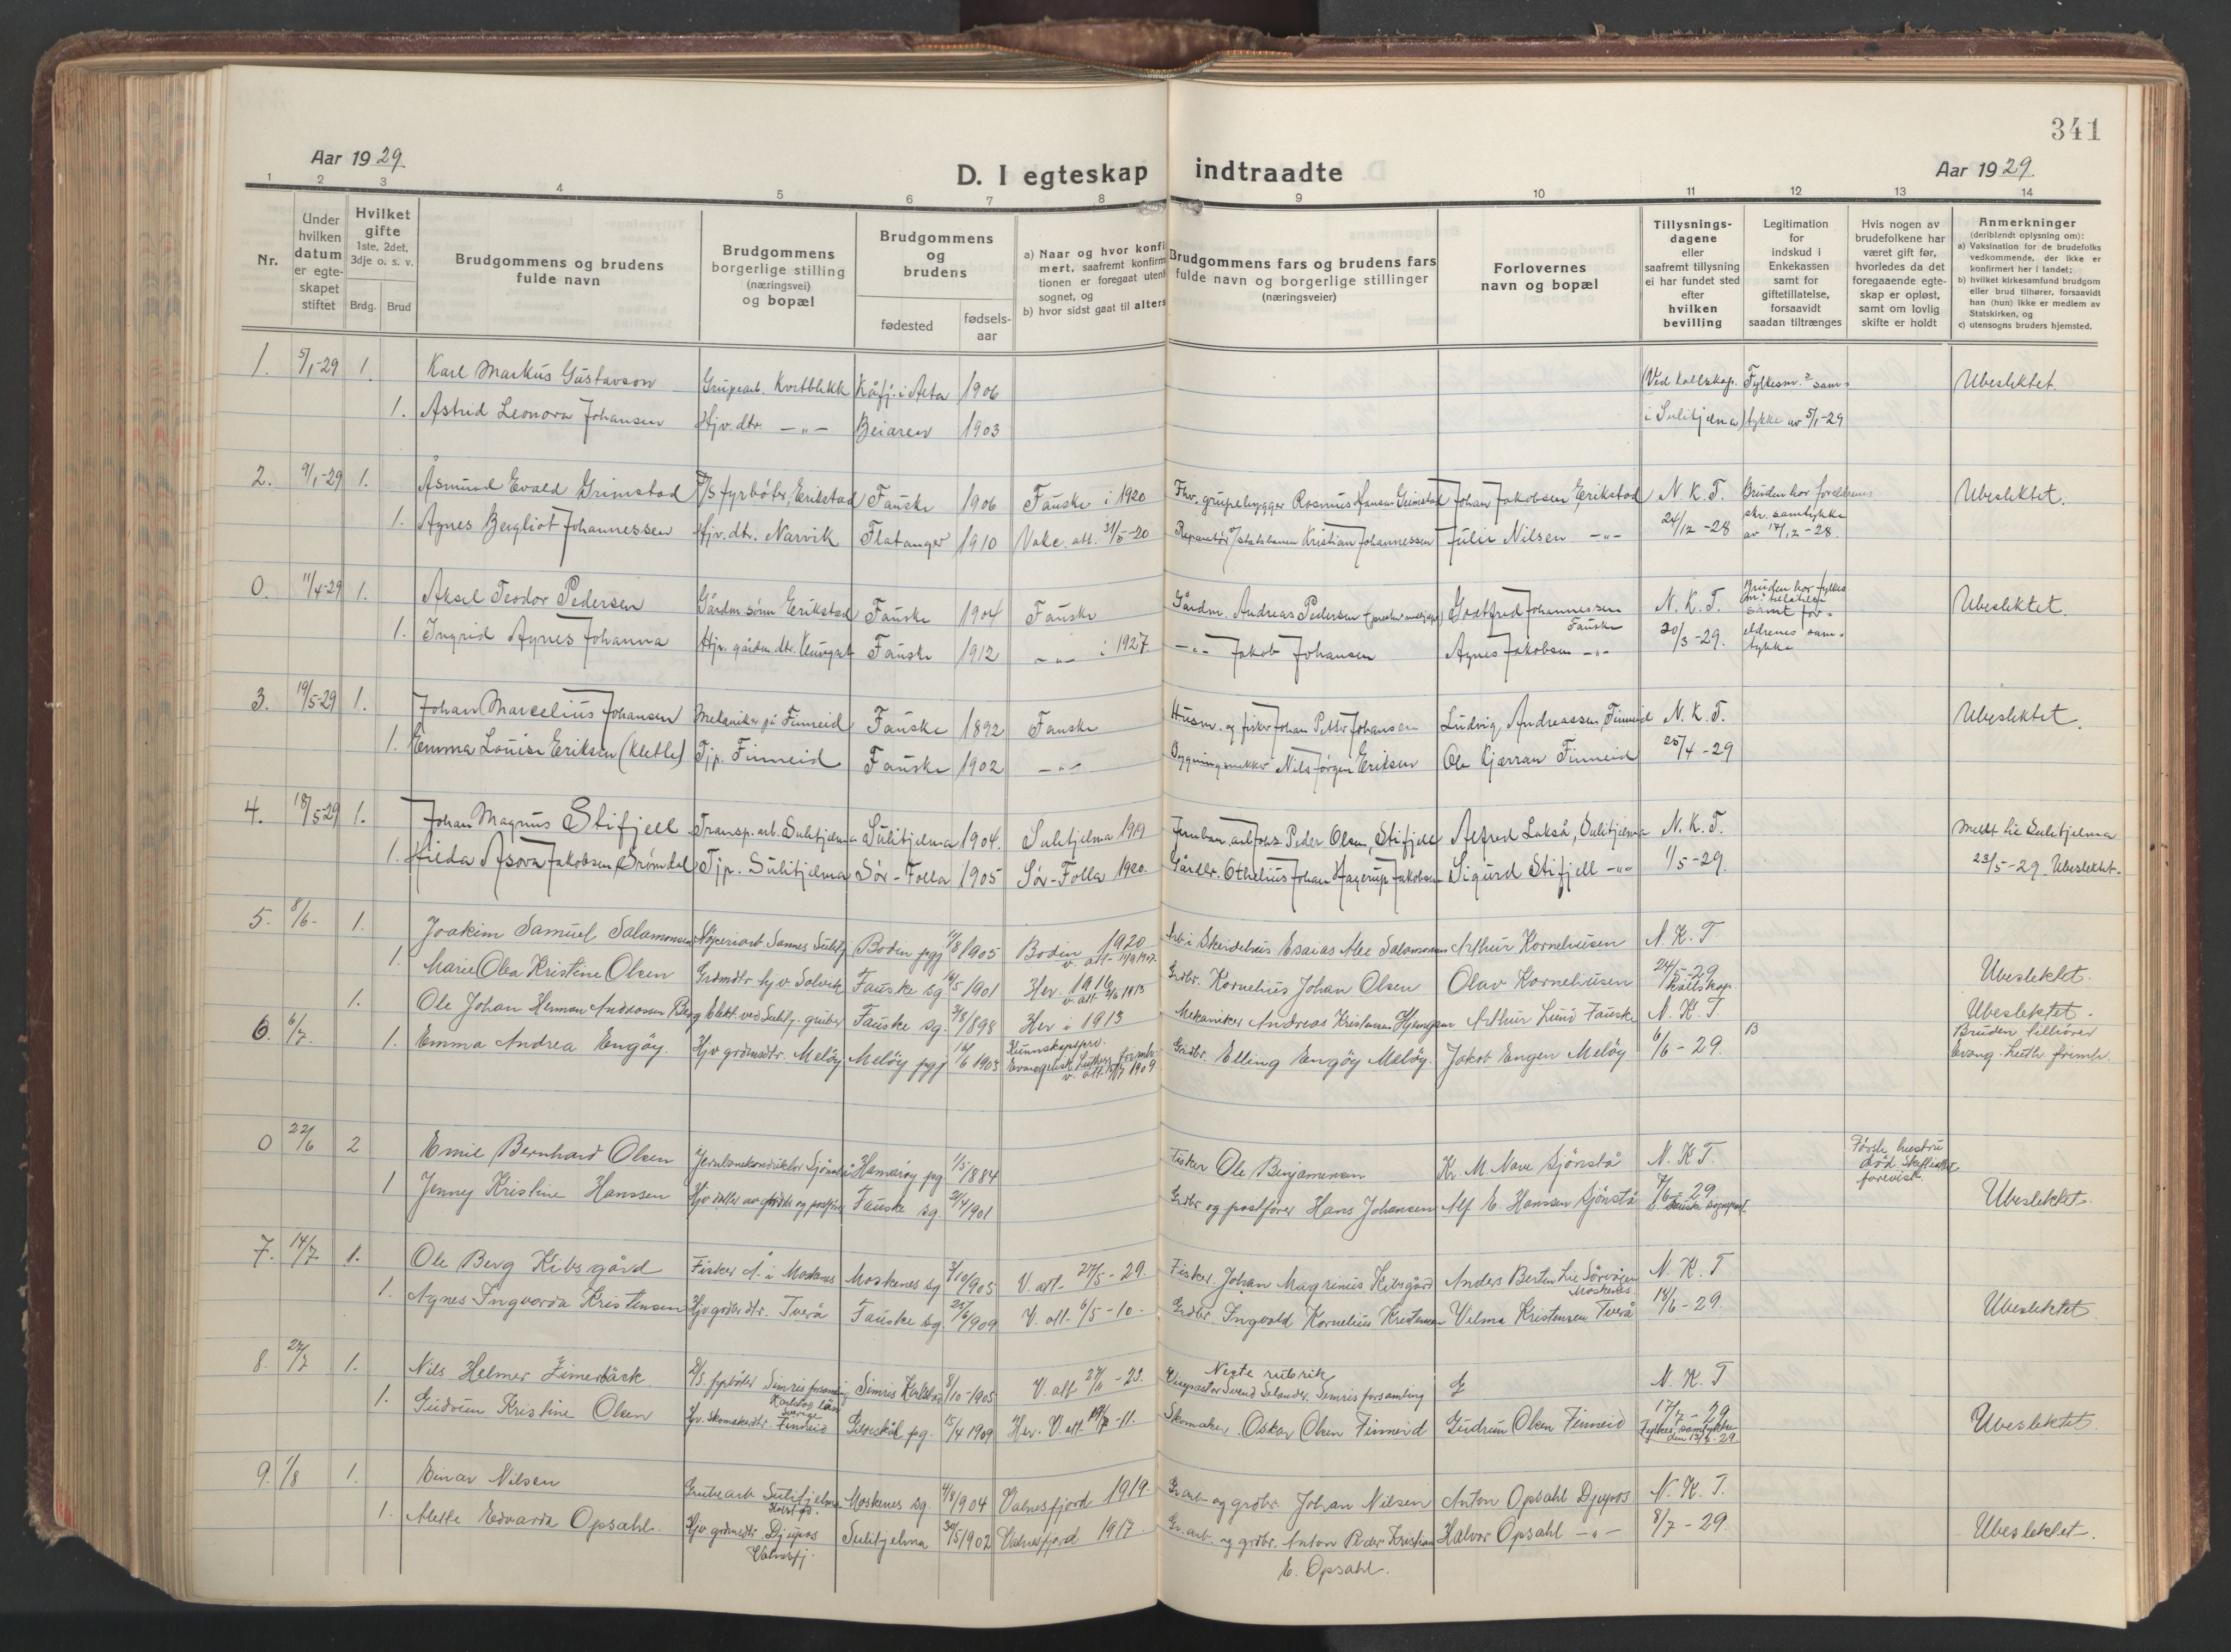 341
Aar 1929.
D. I egteskap indtraadte
Aar 1929.
1 2 3 4 5 6 7 8 9 10 11 12 13 14
Nr.
Under hvilken datum er egteskapet stiftet
Hvilket gifte 1ste, 2det, 3dje o. s. v.
Brdg. Brud
Brudgommens og brudens fulde navn
Brudgommens borgerlige stilling (næringsvei) og bopæl
Brudgommens og brudens
fødested fødsels-aar
a) Naar og hvor konfi
mert, saafremt konfirm
tionen er foregaat utenf
sognet, og
b) hvor sidst gaat til alters
Brudgommens fars og brudens fars
fulde navn og borgerlige stillinger
(næringsveier)
Forlovernes
navn og bopæl
Tillysnings-
dagene
eller
saafremt tillysning
ei har fundet sted
efter
hvilken
bevilling
Legitimation
for
indskud i
Enkekassen
samt for
giftetillatelse,
forsaavidt
saadan tiltrænges
Hvis nogen av
brudefolkene har
været gift før,
hvorledes da det
foregaaende egte-
skap er opløst,
samt om lovlig
skifte er holdt
Anmerkninger
(deriblandt oplysning om):
a) Vaksination for de brudefolks
vedkommende, der ikke er
konfirmert her i landet;
b) hvilket kirkesamfund brudgom
eller brud tilhører, forsaavidt
han (hun) ikke er medlem av
Statskirken, og
c) utensogns bruders hjemsted.
1. 5/1-29 1. Karl Markus Gustavson Grupearb. Kvitblikk Kåfj. i Alta 1906 (Ved kallskap. Fylkesm.s sam- Ubeslektet.
1. Astrid Leonora Johansen Hjv. dtr. -"- Beiaren 1903 i Sulitjelma) tykke av 5/1-29
2. 9/1-29 1. Åsmund Evald Grimstad D/S fyrbøter, Erikstad Fauske 1906 Fauske i 1920 Fhv. grupebygger Rasmus Hansen Grimstad Johan Jakobsen Erikstad N. K. T. Bruden har foreldrenes Ubeslektet.
1. Agnes Bergliot Johannessen Hjv. dtr. Narvik Flatanger 1910 Vakc. att. 31/5-20 Reparatør v/statsbanen Kristian Johannessen Julie Nilsen -"- 24/12-28 skr. samtykke
av 17/12-28.
0. 11/4-29 1. Aksel Teodor Pedersen Gårdm. sønn Erikstad Fauske 1904 Fauske Gårdm. Andreas Pedersen Gotfred Johannessen N. K. T. Bruden har fylkes Ubeslektet.
Fauske samt for-
1. Ingrid Agnes Johanna Hjv. gårdm. dtr. Fauske 1912 -"- i 1927. -"- Jakob Johansen Agnes Jakobsen -"- 20/3-29. eldrenes sam-
tykke
3. 19/5-29 1. Johan Marcelius Johansen Mekaniker på Finneid Fauske 1892 Fauske Husm. og fisker Johan Petter Johansen Ludvig Andreassen, Finneid N. K. T. Ubeslektet.
1. Emma Louise Eriksen (Kletle) Tjp. Finneid Fauske 1902 -"- Bygningssnekker Nils Jørgen Eriksen Ole Kjærran Finneid 25/4-29
4. 18/5-29 1. Johan Magnus Stifjell Transp. arb. Sulitjelma Sulitjelma 1904. Sulitjelma 1919 Jernban. arb. Peder Olsen, Stifjell Alfred Lakså, Sulitjelma N. K. T. Meldt til Sulitjelma
1. Hilda Asora Jakobsen Tjp. Sulitjelma Sør-Folla 1905 Sør-Folla 1920. Gårdbr. Othelius Johan Hagerup Jakobsen Sigurd Stifjell -"- 1/5-29. 23/5-29. Ubeslektet.
5. 8/6- 1. Joakim Samuel Salamonsen Bodin pgj 1905 Bodin 1920 Esaias Alee Salamonsen Arthur Korneliusen N. K. T.
1. Marie Olea Kristine Olsen Grdmdtr hjv. Solvik Fauske sg. 1901 Her. 1916 Grdbr. Kornelius Johan Olsen Olav Korneliusen 24/5-29 Ubeslektet.
v. att 2/6 1913 kallskap.
1. Ole Johan Herman Andreassen Berg Elekt. ved Sulitj. gruber Fauske sg. 1898 Her i 1913 Mekaniker Andreas Kristensen Arthur Lund Fauske N. K. T. Ubeslektet.
6. 6/7. 1. Emma Andrea Engøy. Hjv grdmdtr. Meløy Meløy pgj 1903 Kunnskapsprø. Grdbr. Elling Engøy Meløy. Jakob Engen Meløy 6/6-29. B Bruden tilhører
Evangelisk Luthers frimk. Evang. Luth. frimk.
0 22/6 2 Emil Bernhard Olsen Jernbanekonduktør Sjønstå Hamarøy pg 1/5 1884 Fisker Ole Benjaminsen Kr. M. Nave Sjønstå N. K T Første hustru
død Skifteattest
forevist.
1 Jenny Kristine Hanssen Hjv datter av grdbr og postfører Fauske sg. 21/4 1901 Grdbr og postfører Hans Johansen Alf E. Hanssen Sjønstå 7/6-29 Ubeslektet.
7. 14/7 1. Ole Berg Kibsgård Fisker Å i Moskenes Moskenes sg 3/10 1905 V. att. 27/5-29. Fisker. Johan Magrinius Kibsgård Anders Berten Lie Sørvågen N. K. T
Moskenes.
1. Agnes Ingvarda Kristensen Hjv grdbr dtr. Tverå Fauske sg. 25/6 1909 V. att. 6/5-10. Grdbr. Ingvald Kornelius Kristensen Vilma Kristensen Tverå 18/6-29. Ubeslektet
8. 27/7 1. Nils Helmer Zimerbäck D/S. fyrbøter Simris forsamling Simris Karlskog 8/10-1905 V. att 27/11-23. Neste rubrik N. K. T
Karlskog län Vicepastor Svend Selander. Simris forsamling
Sverige
1. Gudrun Kristine Olsen Hjv. Skomakerdtr. Finneid Gildeskål pg. 15/4 1909 Her. V. att. Skomaker Oskar Olsen Finneid Gudrun Olsen Finneid 17/7-29 Ubeslektet.
Fylkes, samtykke
9. 1/8 1. Einar Nilsen Grubearb Sulitjelma Moskenes sg. 4/8 1904 Valnesfjord 1919. Gr. arb og grdbr. Johan Nilsen Anton Opsahl Djupos N. K. T.
1. Mette Edvarda Opsahl. Hjv. grdmdtr Djupos Sulitjelma 30/5 1902 Valnesfjord 1917. Gr. arb. og grdbr. Anton Peder Kristian Halvor Opsahl -"- 8/7-29. Ubeslektet.
Valnesfj. E. Opsahl.